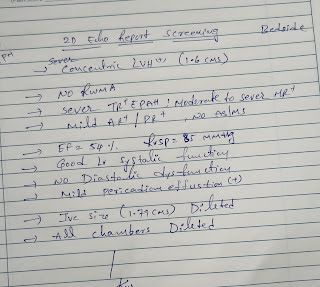 2D Echo Report Screening Bedside
→ Sever Concentric LVH (1.6 cms)
→ NO RWMA
→ Sever TR+ EPAH; Moderate to sever MR+
→ Mild AR+ / PR+, NO AS/MS
→ EF = 54 %. RVSP = 85 mmHg
→ Good LV systolic function
→ NO Diastolic dysfunction
→ Mild pericardial effustion (+)
→ Ivc size (1.79 cms) Dileted
→ All chambers Dileted